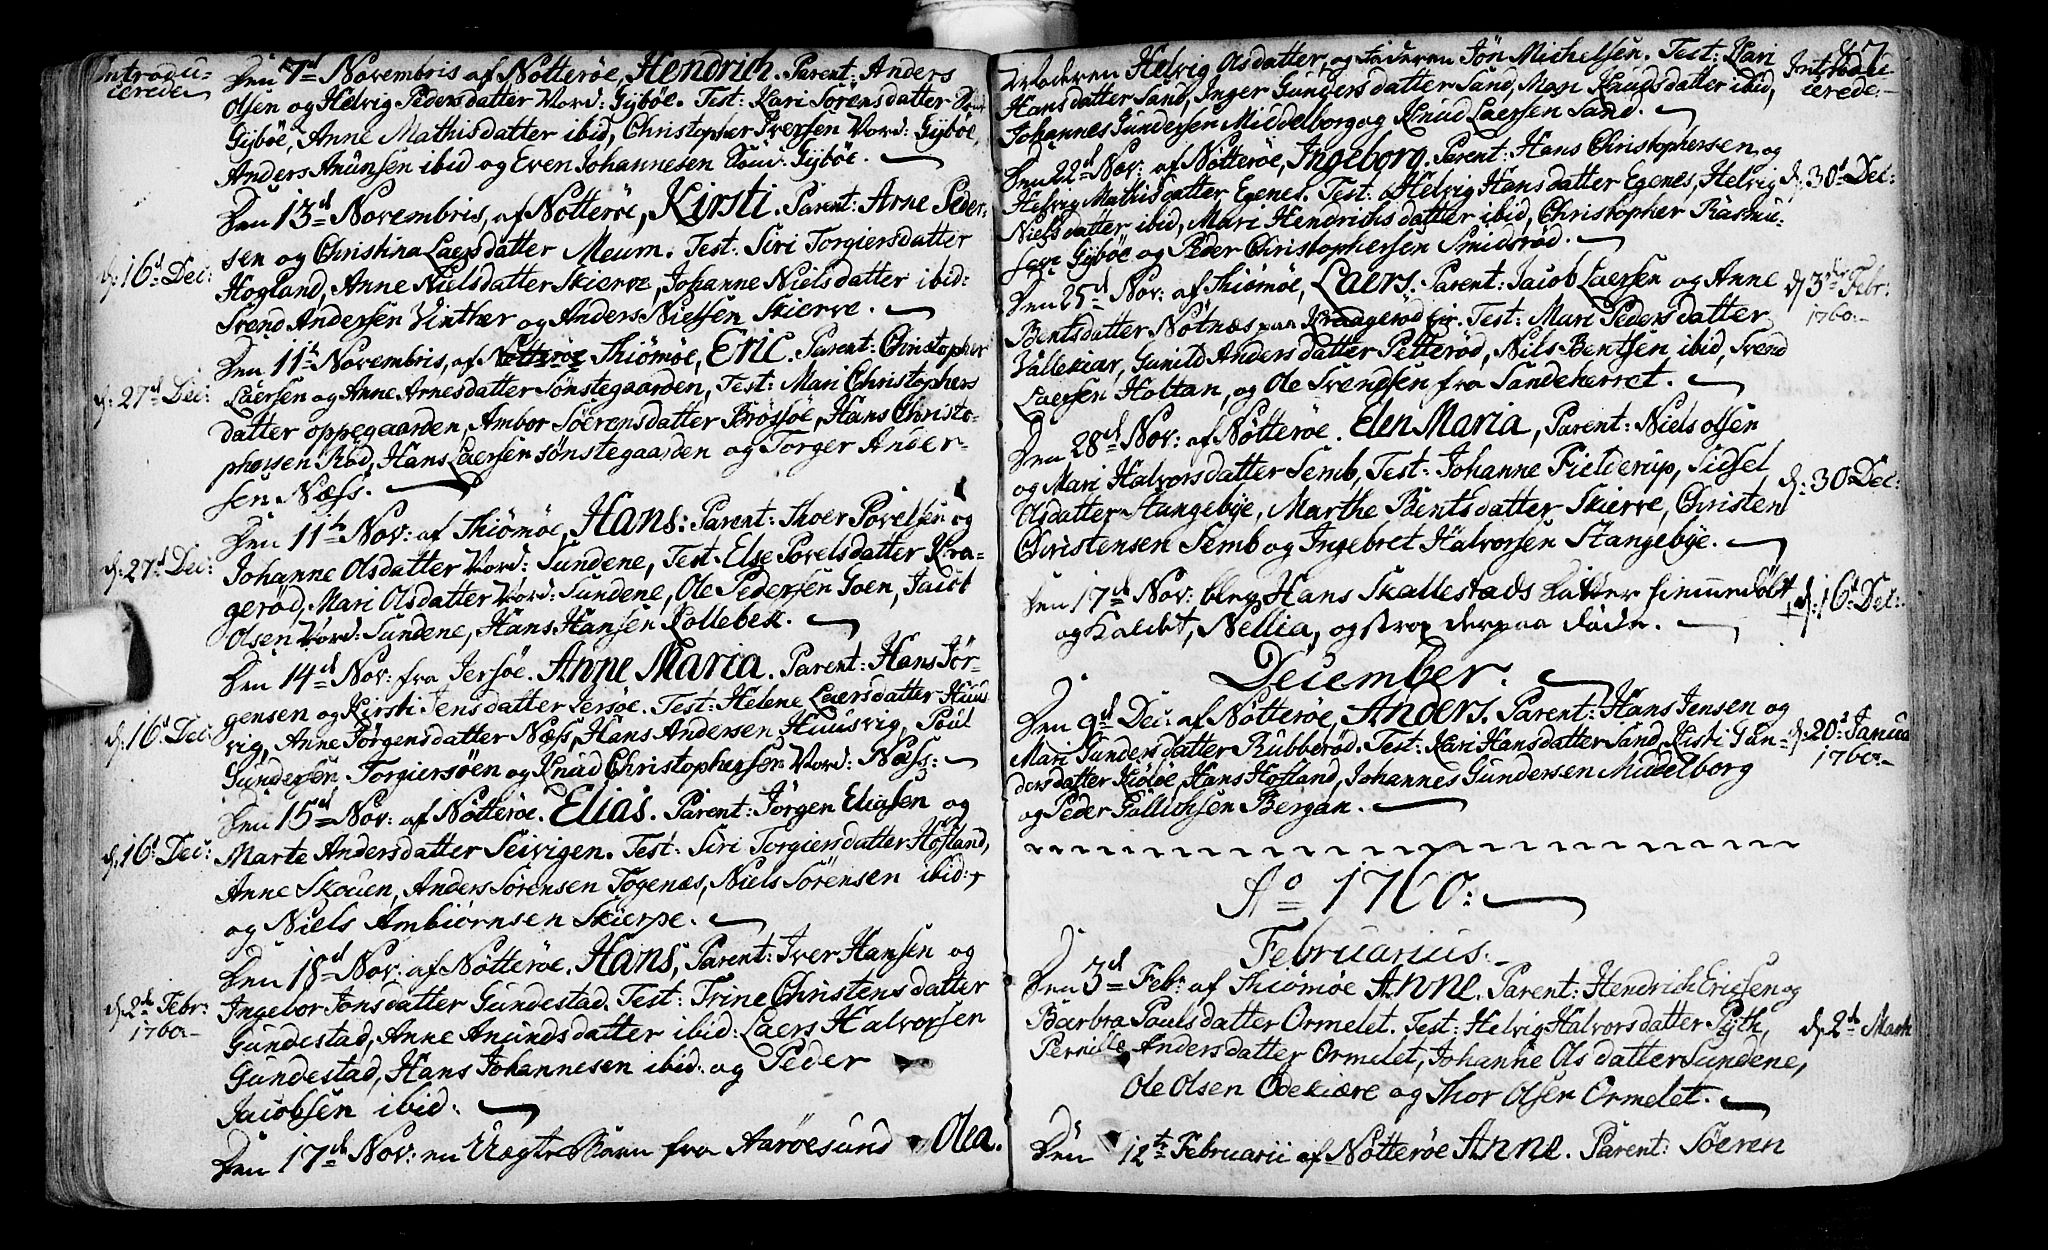 Introdu-
cerede
Den 7d Novembris af Nötteröe, Hendrich. Parent: Anders
Olsen og Helvig Pedersdatter Nord: Gÿböe. Test: Kari Sörensdatter
Gÿböe, Anne Mathisdatter ibid, Christopher Iversen Nord: Gÿböe,
Anders Anunsen ibid og Even Johannesen Gÿböe.
Den 13d Novembris, af Nötteröe, Kirsti. Parent: Arne Peder-
sen og Christina Laersdatter Meum. Test: Siri Torgiersdatter
d: 16d Dec:
Hogland, Anne Nielsdatter Skierve, Johanne Nielsdatter ibid:
Svend Andersen Vinther og Anders Nielsen Skierve.
Den 11te Novembris, af Nötteröe Thiömöe, Eric. Parent: Christopher
d: 27d Dec:
Laersen og Anne Arnesdatter Sönstegaarden, Test: Mari Christophers
datter oppegaarden, Ambor Söerensdatter Brössöe, Hans Christo-
phersen Röd, Hans Laersen Sönstegaarden og Torger Ander-
sen Næss.
Den 11te Nov: af Thiömöe, Hans: Parent: Thoer Povelsen og
d: 27d Dec:
Johanne Olsdatter Nord: Sundene, Test: Else Povelsdatter Kra-
geröd, Mari Olsdatter Nord: Sundene, Ole Pedersen Goen, Jacob
Olsen Nord: Sundene, Hans Hansen Kollebek.
Den 14d Nov: fra Jersöe. Anne Maria. Parent: Hans Jör-
gensen og Kirsti Jensdatter Jersöe. Test: Helene Laersdatter Huus
d: 16 Dec:
vig, Anne Jörgensdatter Næss, Hans Andersen Huusvig, Poul
Gundersen Torgiersöen og Knud Christophersen Nord: Næss:
Den 15d Nov: af Nötteröe. Elias. Parent: Jörgen Eliasen og
d: 16d Dec:
Marte Andersdatter Seivigen. Test: Siri Torgiersdatter Hofland,
Anne Skouen, Anders Sörensen Togenæs, Niels Sörensen ibid:
og Niels Ambiörnsen Skierpe.
Den 18d Nov: af Nötteröe. Hans, Parent: Iver Hansen og
d: 2de Febr:
1760
Ingebor Jonsdatter Gundestad. Test: Trine Christensdatter
Gundestad, Anne Anundsdatter ibid: Laers Halvorsen
Gundestad, Hans Johannesen ibid: og Peder
Jacobsen ibid:
Den 17de Nov: en Uægte Barn fra Aaröesund Olea.
47
Introdu-
cerede
Moderen Helvig Olsdatter, og faderen Jön Michelsen. Test: Kari
Hansdatter Sand, Inger Gundersdatter Sand, Mari Knudsdatter ibid,
Johannes Gundersen Middelborg og Knud Laersen Sand.
Den 22d Nov: af Nötteröe, Ingeborg. Parent: Hans Christophersen og
Helvig Mathisdatter Egenes. Test: Helvig Hansdatter Egenes, Helvig
d: 30d Dec:
Nielsdatter ibid, Mari Hendrichsdatter ibid, Christopher Rasmu-
sen Gÿböe og Peder Christophersen Smidsröd.
Den 25d Nov: af Thiömöe, Laers. Parent: Jacob Laersen og Anne
d: 3die Febr:
1760
Bentsdatter Nötnæs paa Kraageröd Eie. Test: Mari Pedersdatter
Vallekiær, Gunild Andersdatter Petteröd, Nils Bentsen ibid, Svend
Laersen Holtan, og Ole Svendsen fra Sandeherret.
Den 28d Nov: af Nötteröe. Elen Maria, Parent: Niels olsen
og Mari Halvorsdatter Semb, Test: Johanne Fielderup, Sidsel
d: 30 Dec:
Olsdatter Stangebÿe, Marthe Bentsdatter Skierve, Christen
Christensen Semb og Ingebret Halvorsen Stangebÿe.
Den 17d Nov: blev Hans Skallestads datter hiemmedöbt
+ d: 16d Dec:
og kaldet, Nellia, og strax derpaa döde.
December.
Den 9d Dec: af Nötteröe, Anders. Parent: Hans Jensen og
Mari Gundersdatter Rubberöd. Test: Kari Hansdatter Sand, Kisti Gun-
d: 20d Janua
1760
dersdatter Kiölöe, Hans Hofland, Johannes Gundersen Middelborg
og Peder Gullichsen Bergan.
Ao 1760:
Februarius.
Den 3d Febr: af Thiömöe Anne. Parent: Hendrich Ericsen og
Barbra Poulsdatter Ormelet. Test: Helvig Halvorsdatter Pÿth,
d: 2de Marti
Pernille Andersdatter Ormelet, Johanne Olsdatter Sundene,
Ole Olsen Odekiære og Thor Olsen Ormelet.
Den 12te Februarii af Nötteröe Anne. Parent: Söeren